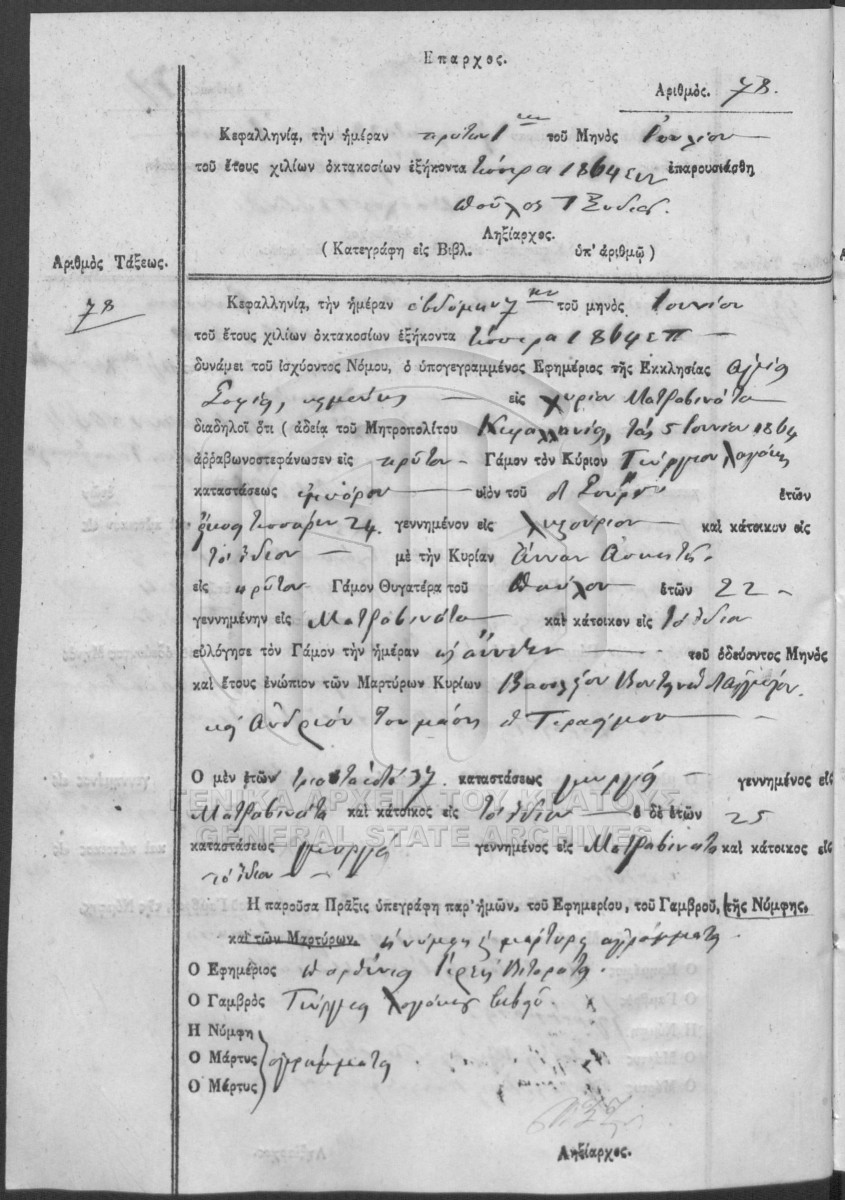 Έπαρχος.
Αριθμὸς. 78.
Κεφαλληνίᾳ, τὴν ἡμέραν πρώτην 1ην τοῦ Μηνὸς Ἰουλίου
τοῦ ἔτους χιλίων ὀκτακοσίων ἑξήκοντα τέσσερα 1864 ἐπαρουσιάσθη
Ληξίαρχος.
( Κατεγράφη εἰς Βιβλ. ὑπ' ἀριθμῷ )
Αριθμὸς Τάξεως.
78
Κεφαλληνίᾳ, τὴν ἡμέραν ἑβδόμην 7ην τοῦ μηνὸς Ἰουνίου
τοῦ ἔτους χιλίων ὀκτακοσίων ἑξήκοντα τέσσερα 1864 ἐπ
δυνάμει τοῦ ἰσχύοντος Νόμου, ὁ ὑπογεγραμμένος Ἐφημέριος τῆς Εκκλησίας Ἁγία
Σοφία, εἰς χωρίον Ματζαβινάτα
διαδηλοῖ ὅτι ( ἀδείᾳ τοῦ Μητροπολίτου Κεφαλληνίας, τὰς 5 Ἰουνίου 1864
ἀῤῥαβωνοστεφάνωσεν εἰς πρῶτον Γάμον τὸν Κύριον Γεώργιον
καταστάσεως ἐμπόρου υἱὸν τοῦ ἐτῶν
εἴκοσι τεσσάρων 24. γεννημένον εἰς Ληξούριον καὶ κάτοικον εἰς
τὸ ἴδιον μὲ τὴν Κυρίαν Ἄνναν
εἰς πρῶτον Γάμον Θυγατέρα τοῦ Παύλου ἐτῶν 22
γεννημένην εἰς Ματζαβινάτα καὶ κάτοικον εἰς τὸ ἴδιον
εὐλόγησε τὸν Γάμον τὴν ἡμέραν ὡς ἄνωθεν τοῦ ὁδεύοντος Μηνὸς
καὶ ἔτους ἐνώπιον τῶν Μαρτύρων Κυρίων Βασιλείου
καὶ Ἀνδρέου Τουμάση Γερασίμου
Ο μὲν ἐτῶν 37 καταστάσεως γεωργὸ γεννημένος εἰς
Ματζαβινάτα καὶ κάτοικος εἰς τὸ ἴδιον ὁ δὲ ἐτῶν 25
καταστάσεως γεωργὸ γεννημένος εἰς Ματζαβινάτα καὶ κάτοικος εἰς
τὸ ἴδιον
Η παροῦσα Πρᾶξις ὑπεγράφη παρ' ἡμῶν, τοῦ Εφημερίου, τοῦ Γαμβροῦ, τῆς Νύμφης,
καὶ τῶν Μαρτύρων. ἡ νύμφη μάρτυρες ἀγράμματοι.
Ο Εφημέριος Παρθένιος Ἱερεὺς
Ο Γαμβρὸς Γεώργιος
Η Νύμφη
Ο Μάρτυς ἀγράμματοι
Ο Μάρτυς
Ληξίαρχος.
ΓΕΝΙΚΑ ΑΡΧΕΙΑ ΤΟΥ ΚΡΑΤΟΥΣ
GENERAL STATE ARCHIVES